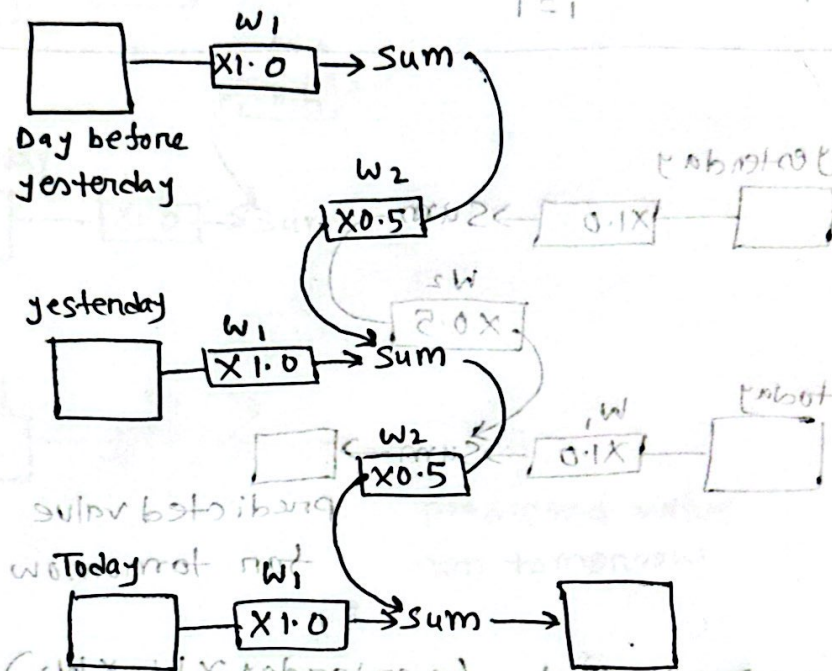 W1
X1.0 → Sum
Day before
yesterday
W2
X0.5
yesterday
W1
X1.0 → Sum
W2
X0.5
Today
W1
X1.0 → Sum →